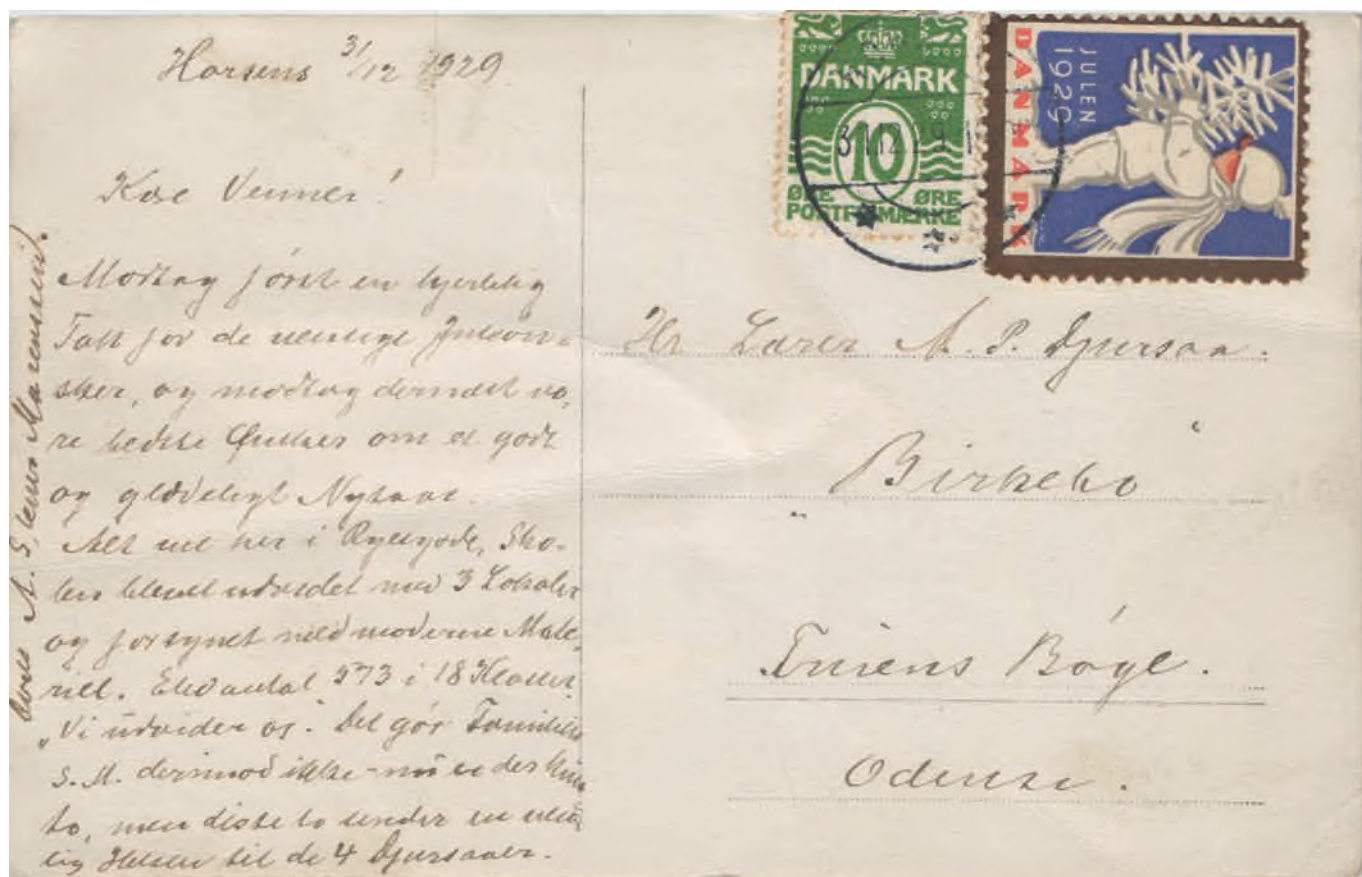 Horsens 3/12 1929.
Kære Venner!
Modtag först en hjertelig
Tak for de venlige Juleön-
sker, og modtag dernæst vo-
re bedste Önsker om et godt
og glædeligt Nytaar.
Alt vel her i Rysesgade, Sko-
len blevet udvidet med 3 Lokaler
og forsynet med moderne Mate-
riel. Elevantal 573 i 18 Klasser.
„Vi udvider os". Det gör Familien
S. M. derimod ikke - nu er der kun
to, men disse to sender en ven-
lig Hilsen til de 4 Djursaaer.
Deres A. S.
DANMARK
10
ØRE ØRE
POSTFRIMÆRKE
JULEN
1929
DANMARK
Hr. Lærer M. P. Djursaa.
Birkebo
Fruens Böge.
Odense.